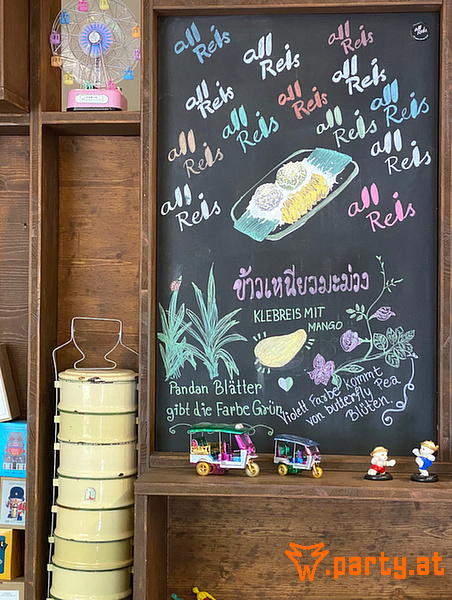 all Reis
all Reis
all Reis
all Reis
all Reis
all Reis
all Reis
all Reis
all Reis
all Reis
all Reis
all Reis
all Reis
ข้าวเหนียวมะม่วง
KLEBREIS MIT
MANGO
Pandan Blätter
gibt die Farbe Grün
Violett Farbe kommt
von butterfly Pea
Blüten
.party.at